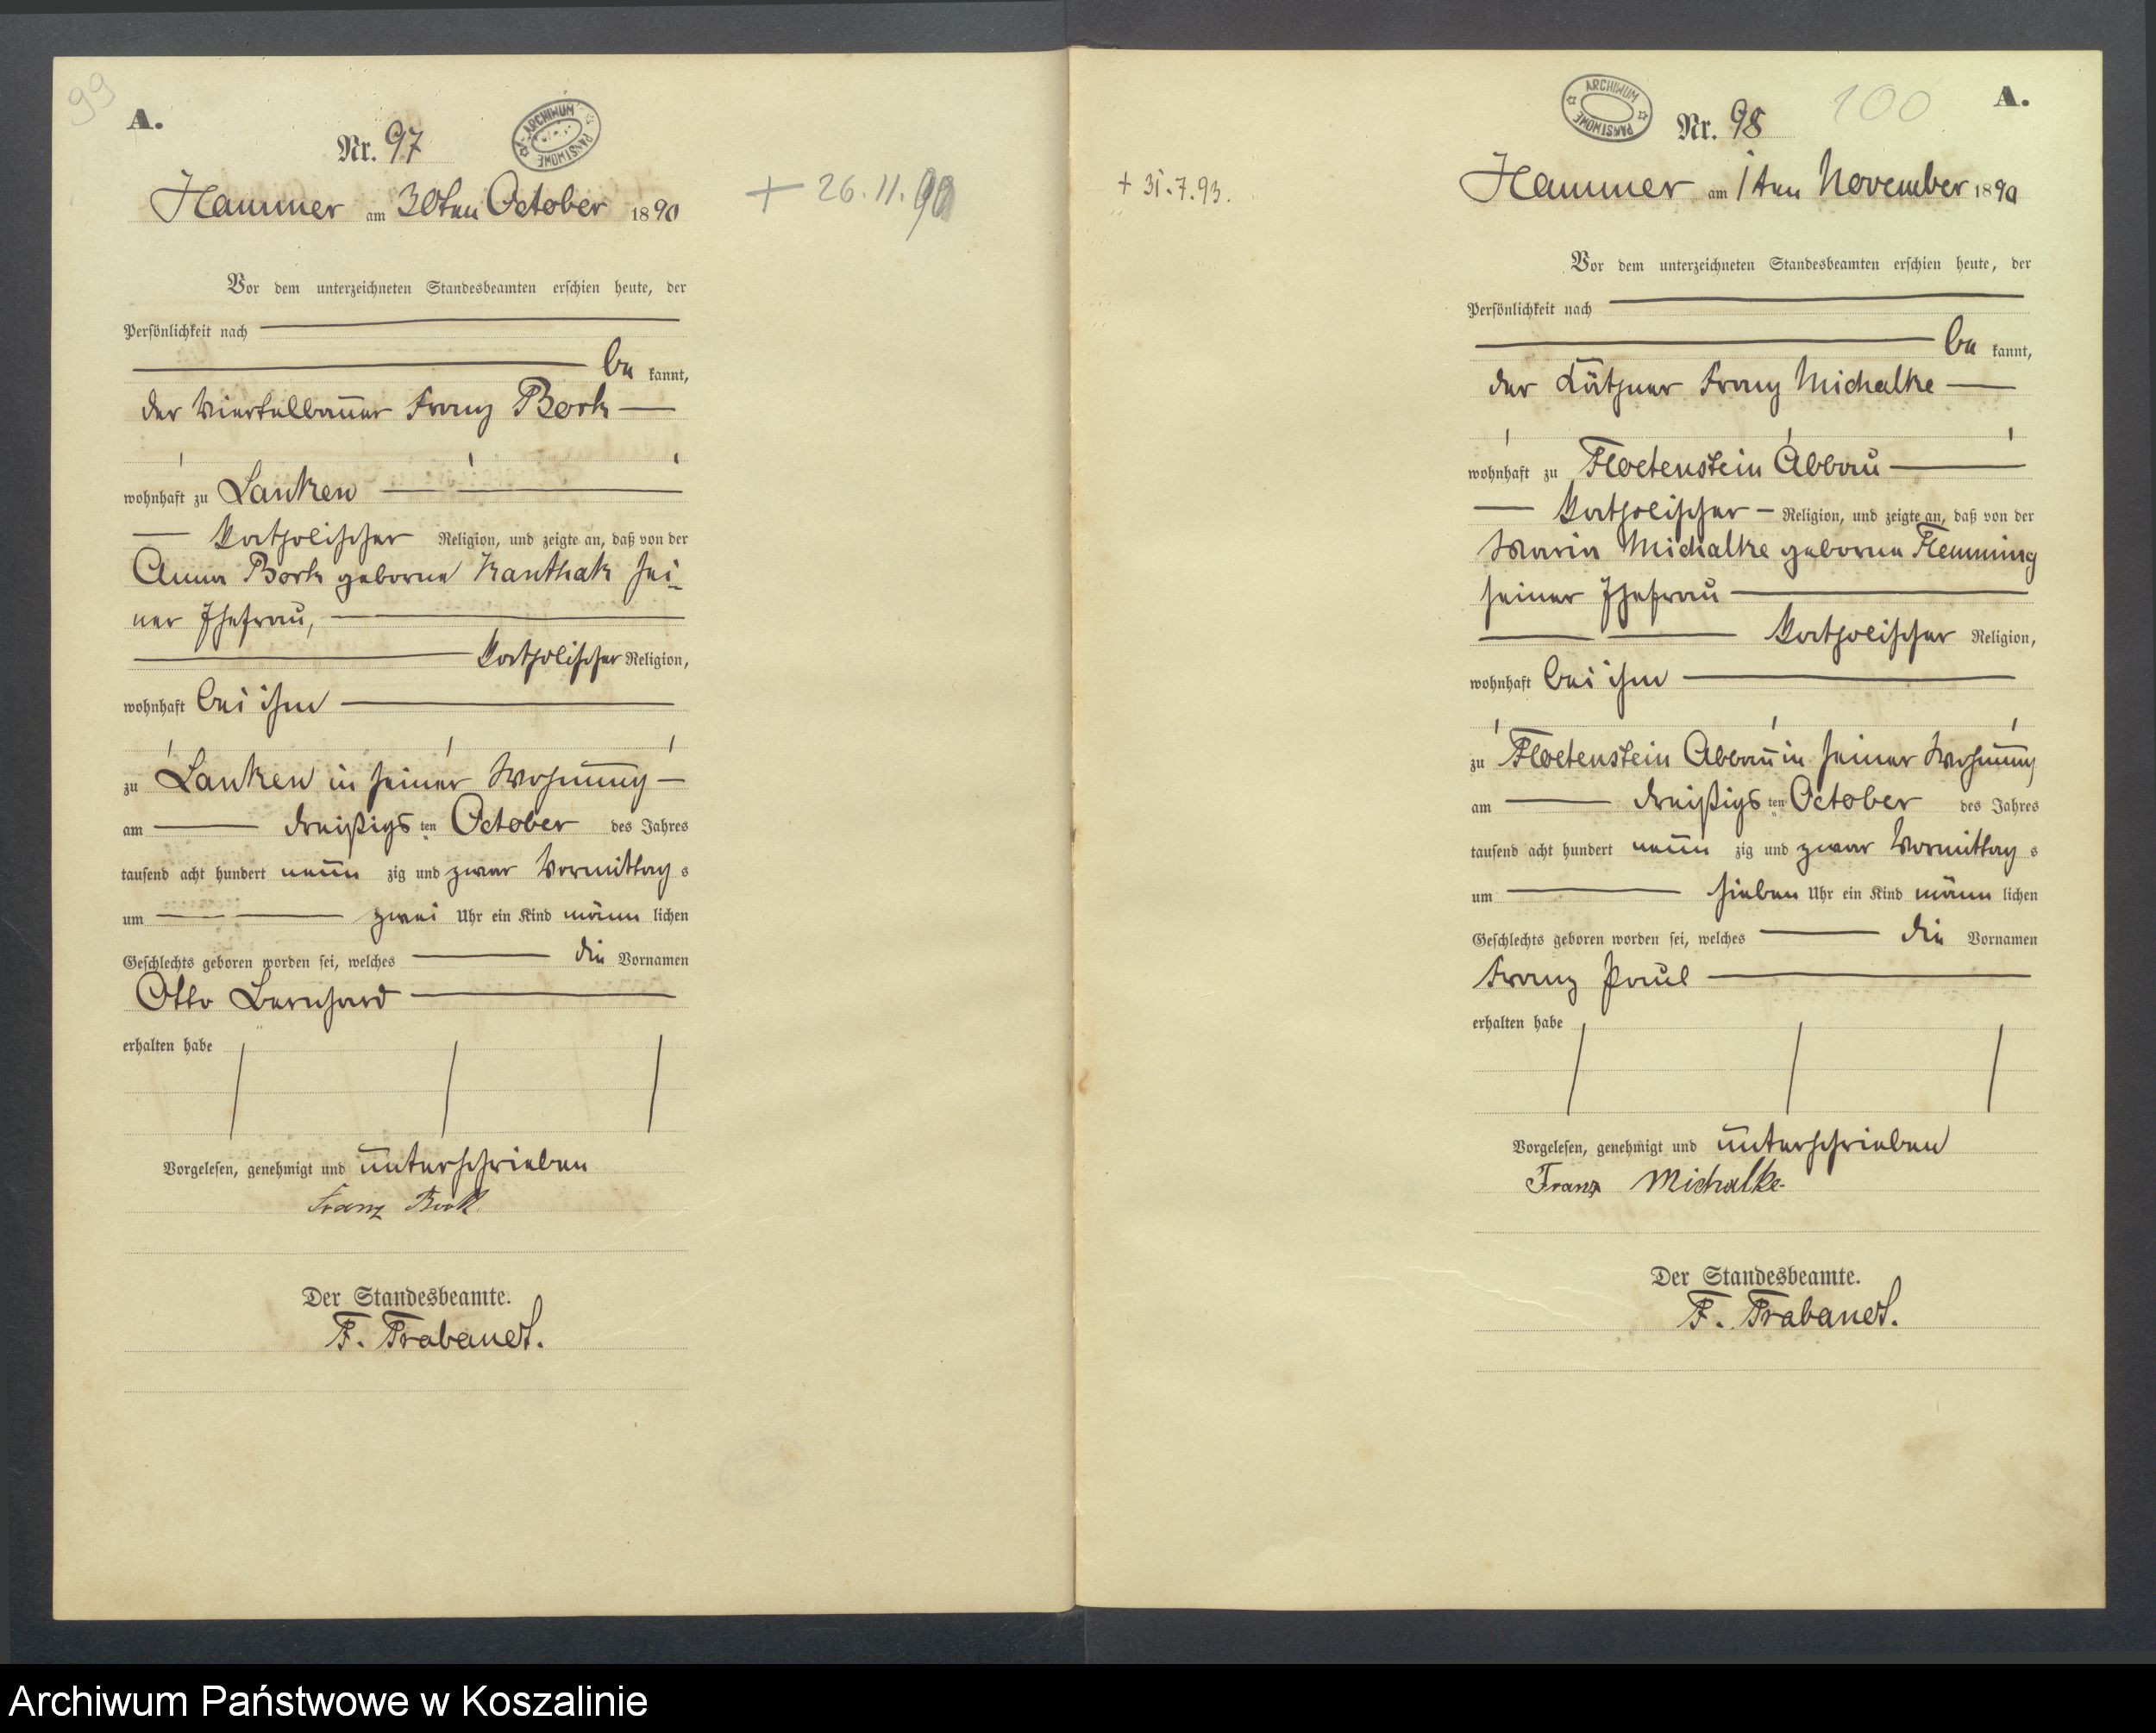 99
A.
Nr. 97
ARCHIWUM PAŃSTWOWE
Hammer am 30ten October 1890
+ 26.11.90
Vor dem unterzeichneten Standesbeamten erschien heute, der
Persönlichkeit nach
be kannt,
der Viertelbauer Franz Bork
wohnhaft zu Lanken
katholischer Religion, und zeigte an, daß von der
Anna Bork geborne Kanthak sei-
ner Ehefrau,
katholischer Religion,
wohnhaft bei ihm
zu Lanken in seiner Wohnung
am dreißigs ten October des Jahres
tausend acht hundert neun zig und zwar Vormittag s
um zwei Uhr ein Kind männ lichen
Geschlechts geboren worden sei, welches die Vornamen
Otto Bernhard
erhalten habe
Vorgelesen, genehmigt und unterschrieben
Franz Bork
Der Standesbeamte.
F. Trabandt.
100
A.
ARCHIWUM PAŃSTWOWE
Nr. 98
+ 31.7.93.
Hammer am 1ten November 1890
Vor dem unterzeichneten Standesbeamten erschien heute, der
Persönlichkeit nach
be kannt,
der Käthner Franz Michalke
wohnhaft zu Floetenstein Abbau
katholischer Religion, und zeigte an, daß von der
Maria Michalke geborne Flemming
seiner Ehefrau
katholischer Religion,
wohnhaft bei ihm
zu Floetenstein Abbau in seiner Wohnung
am dreißigs ten October des Jahres
tausend acht hundert neun zig und zwar Vormittag s
um sieben Uhr ein Kind männ lichen
Geschlechts geboren worden sei, welches die Vornamen
Franz Paul
erhalten habe
Vorgelesen, genehmigt und unterschrieben
Franz Michalke
Der Standesbeamte.
F. Trabandt.
Archiwum Państwowe w Koszalinie